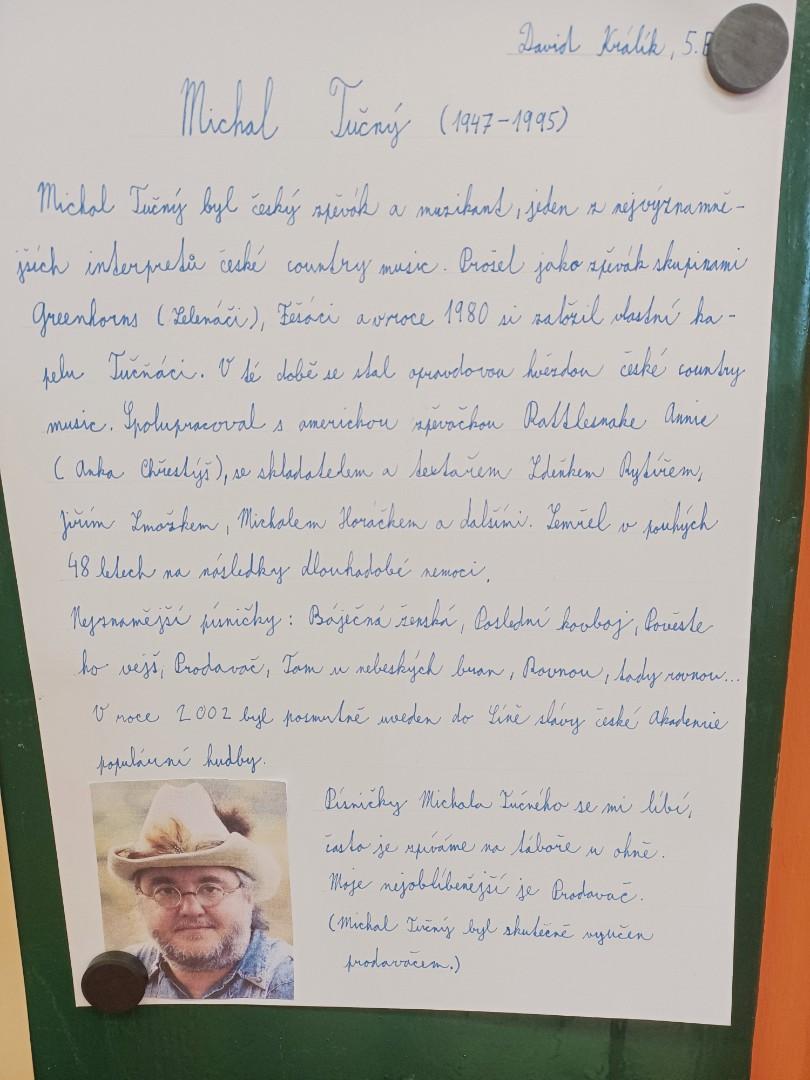 David Králík, 5.
Michal Tučný (1947-1995)
Michal Tučný byl český zpěvák a muzikant, jeden z nejvýznamně-
jších interpretů české country music. Prošel jako zpěvák skupinami
Greenhorns (Zelenáči), Fešáci a v roce 1980 si založil vlastní ka-
pelu Tučňáci. V té době se stal opravdovou hvězdou české country
music. Spolupracoval s americkou zpěvačkou Rattlesnake Annie
(Anka Chřestýš), se skladatelem a textařem Zdeňkem Rytířem,
Jiřím Šmažkem, Michalem Horáčkem a dalšími. Zemřel v pouhých
48 letech na následky dlouhodobé nemoci.
Nejznámější písničky: Báječná ženská, Poslední kovboj, Pověste
ho vejš, Prodavač, Tam u nebeských bran, Rovnou, tady rovnou...
V roce 2002 byl posmrtně uveden do Síně slávy české Akademie
populární hudby.
Písničky Michala Tučného se mi líbí,
často je zpíváme na táboře u ohně.
Moje nejoblíbenější je Prodavač.
(Michal Tučný byl skutečně vyučen
prodavačem.)